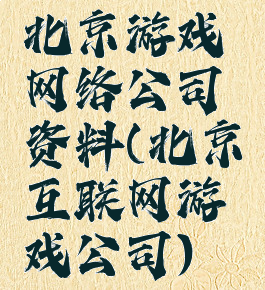 北京游戏
网络公司
资料(北京
互联网游
戏公司)